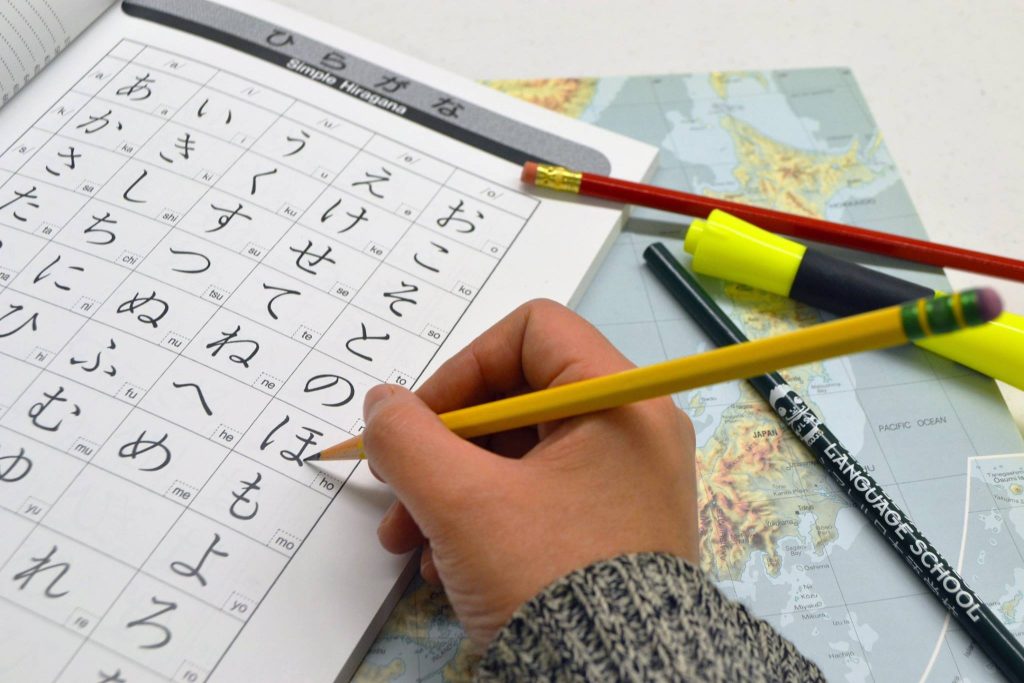 ひらがな
Simple Hiragana
/a/ /i/ /u/ /e/ /o/
a あ a い i う u え e お o
/k/ か ka き ki く ku け ke こ ko
s/ さ sa し shi す su せ se そ so
た ta ち chi つ tsu て te と to
na に ni ぬ nu ね ne の
ひ hi ふ fu へ he ほ ho
む mu め me も mo
ゆ yu よ yo
れ re ろ ro
HOKKAIDO
JAPAN
PACIFIC OCEAN
LANGUAGE SCHOOL